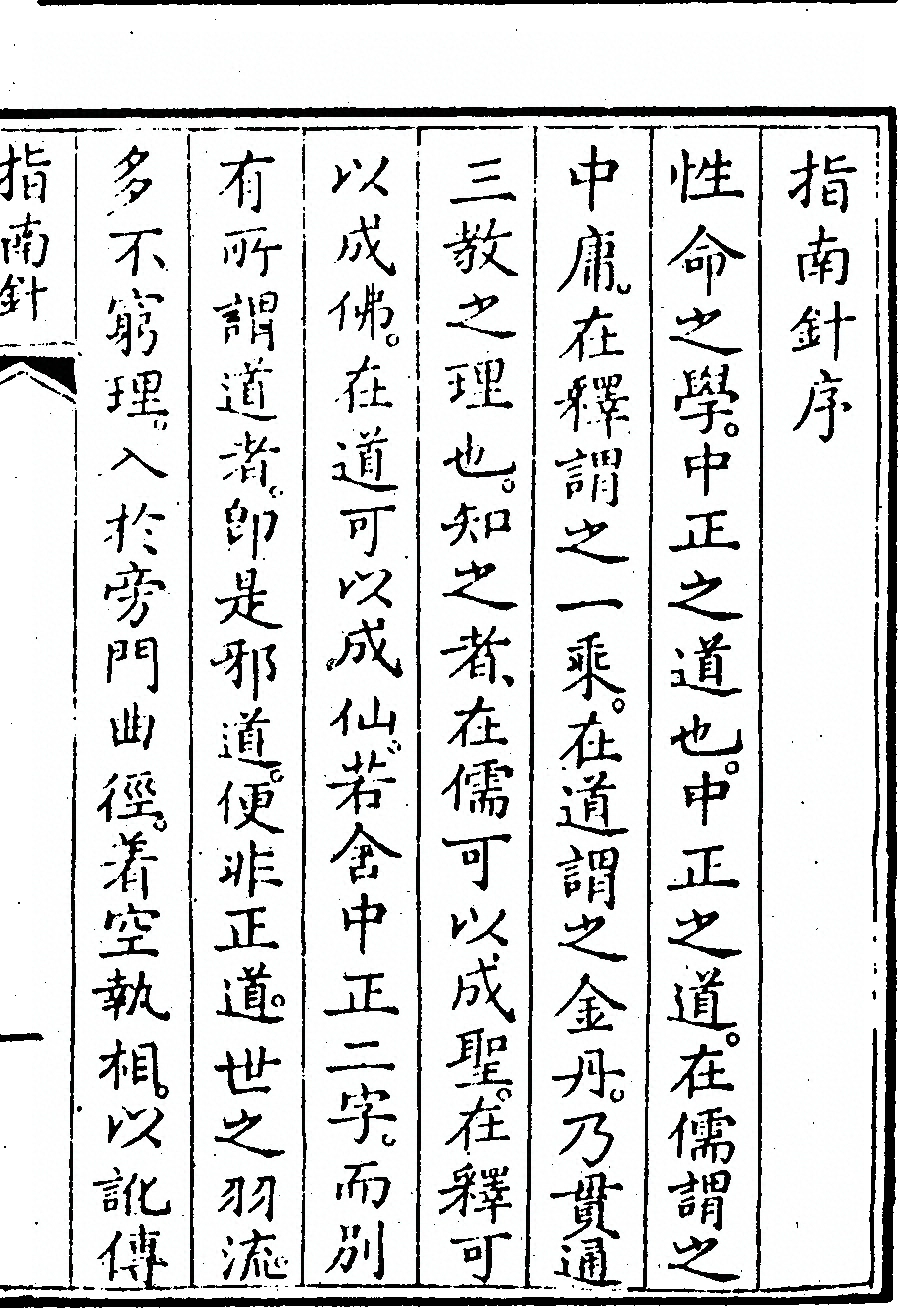 指南針序
性命之學。中正之道也。中正之道。在儒謂之
中庸。在釋謂之一乘。在道謂之金丹。乃貫通
三教之理也。知之者、在儒可以成聖。在釋可
以成佛。在道可以成仙。若舍中正二字。而別
有所謂道者。即是邪道。便非正道。世之羽流。
多不窮理。入於旁門曲徑。着空執相。以訛傳
指南針
一